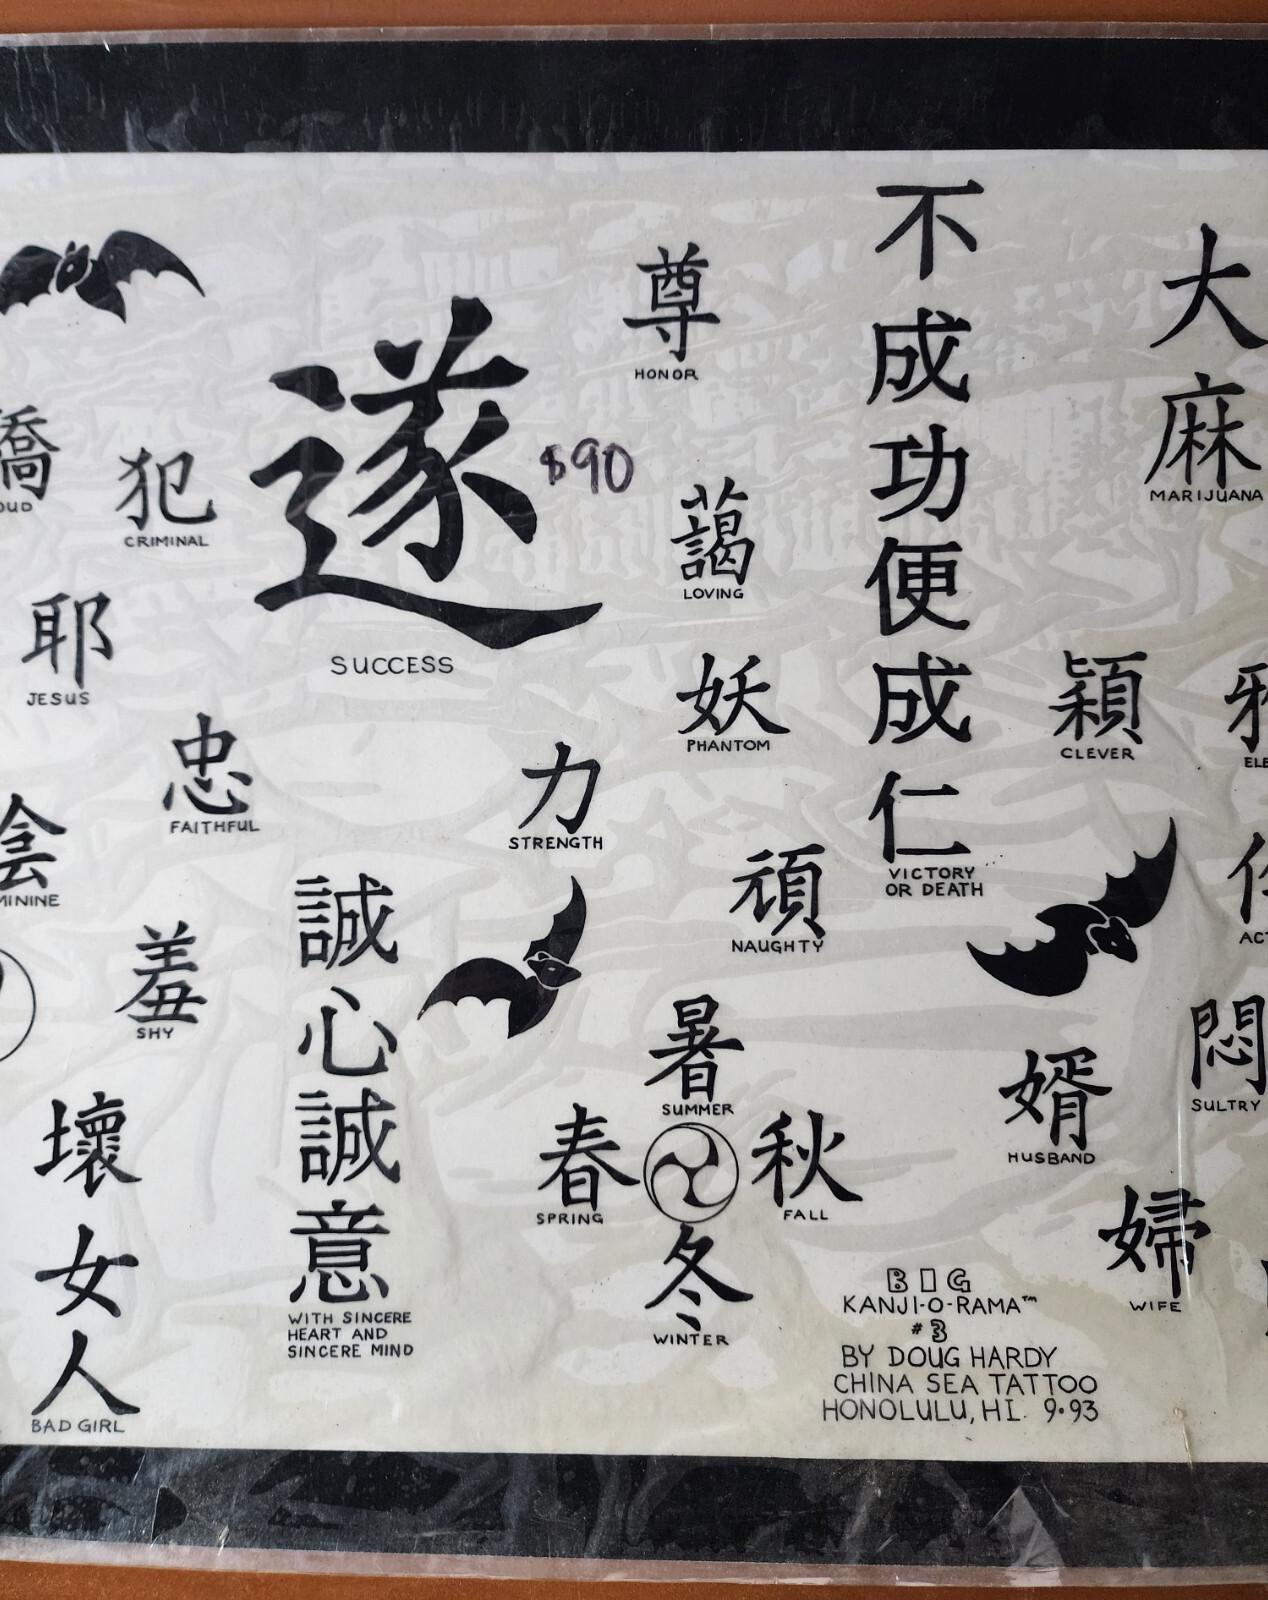 不成功便成仁
VICTORY
OR DEATH
大麻
MARIJUANA
尊
HONOR
遂
SUCCESS
$90
犯
CRIMINAL
藹
LOVING
耶
JESUS
妖
PHANTOM
穎
CLEVER
忠
FAITHFUL
力
STRENGTH
頑
NAUGHTY
羞
SHY
誠心誠意
WITH SINCERE
HEART AND
SINCERE MIND
暑
SUMMER
春
SPRING
秋
FALL
冬
WINTER
婿
HUSBAND
悶
SULTRY
婦
WIFE
壞女人
BAD GIRL
BIG
KANJI-O-RAMA™
#3
BY DOUG HARDY
CHINA SEA TATTOO
HONOLULU, HI. 9·93